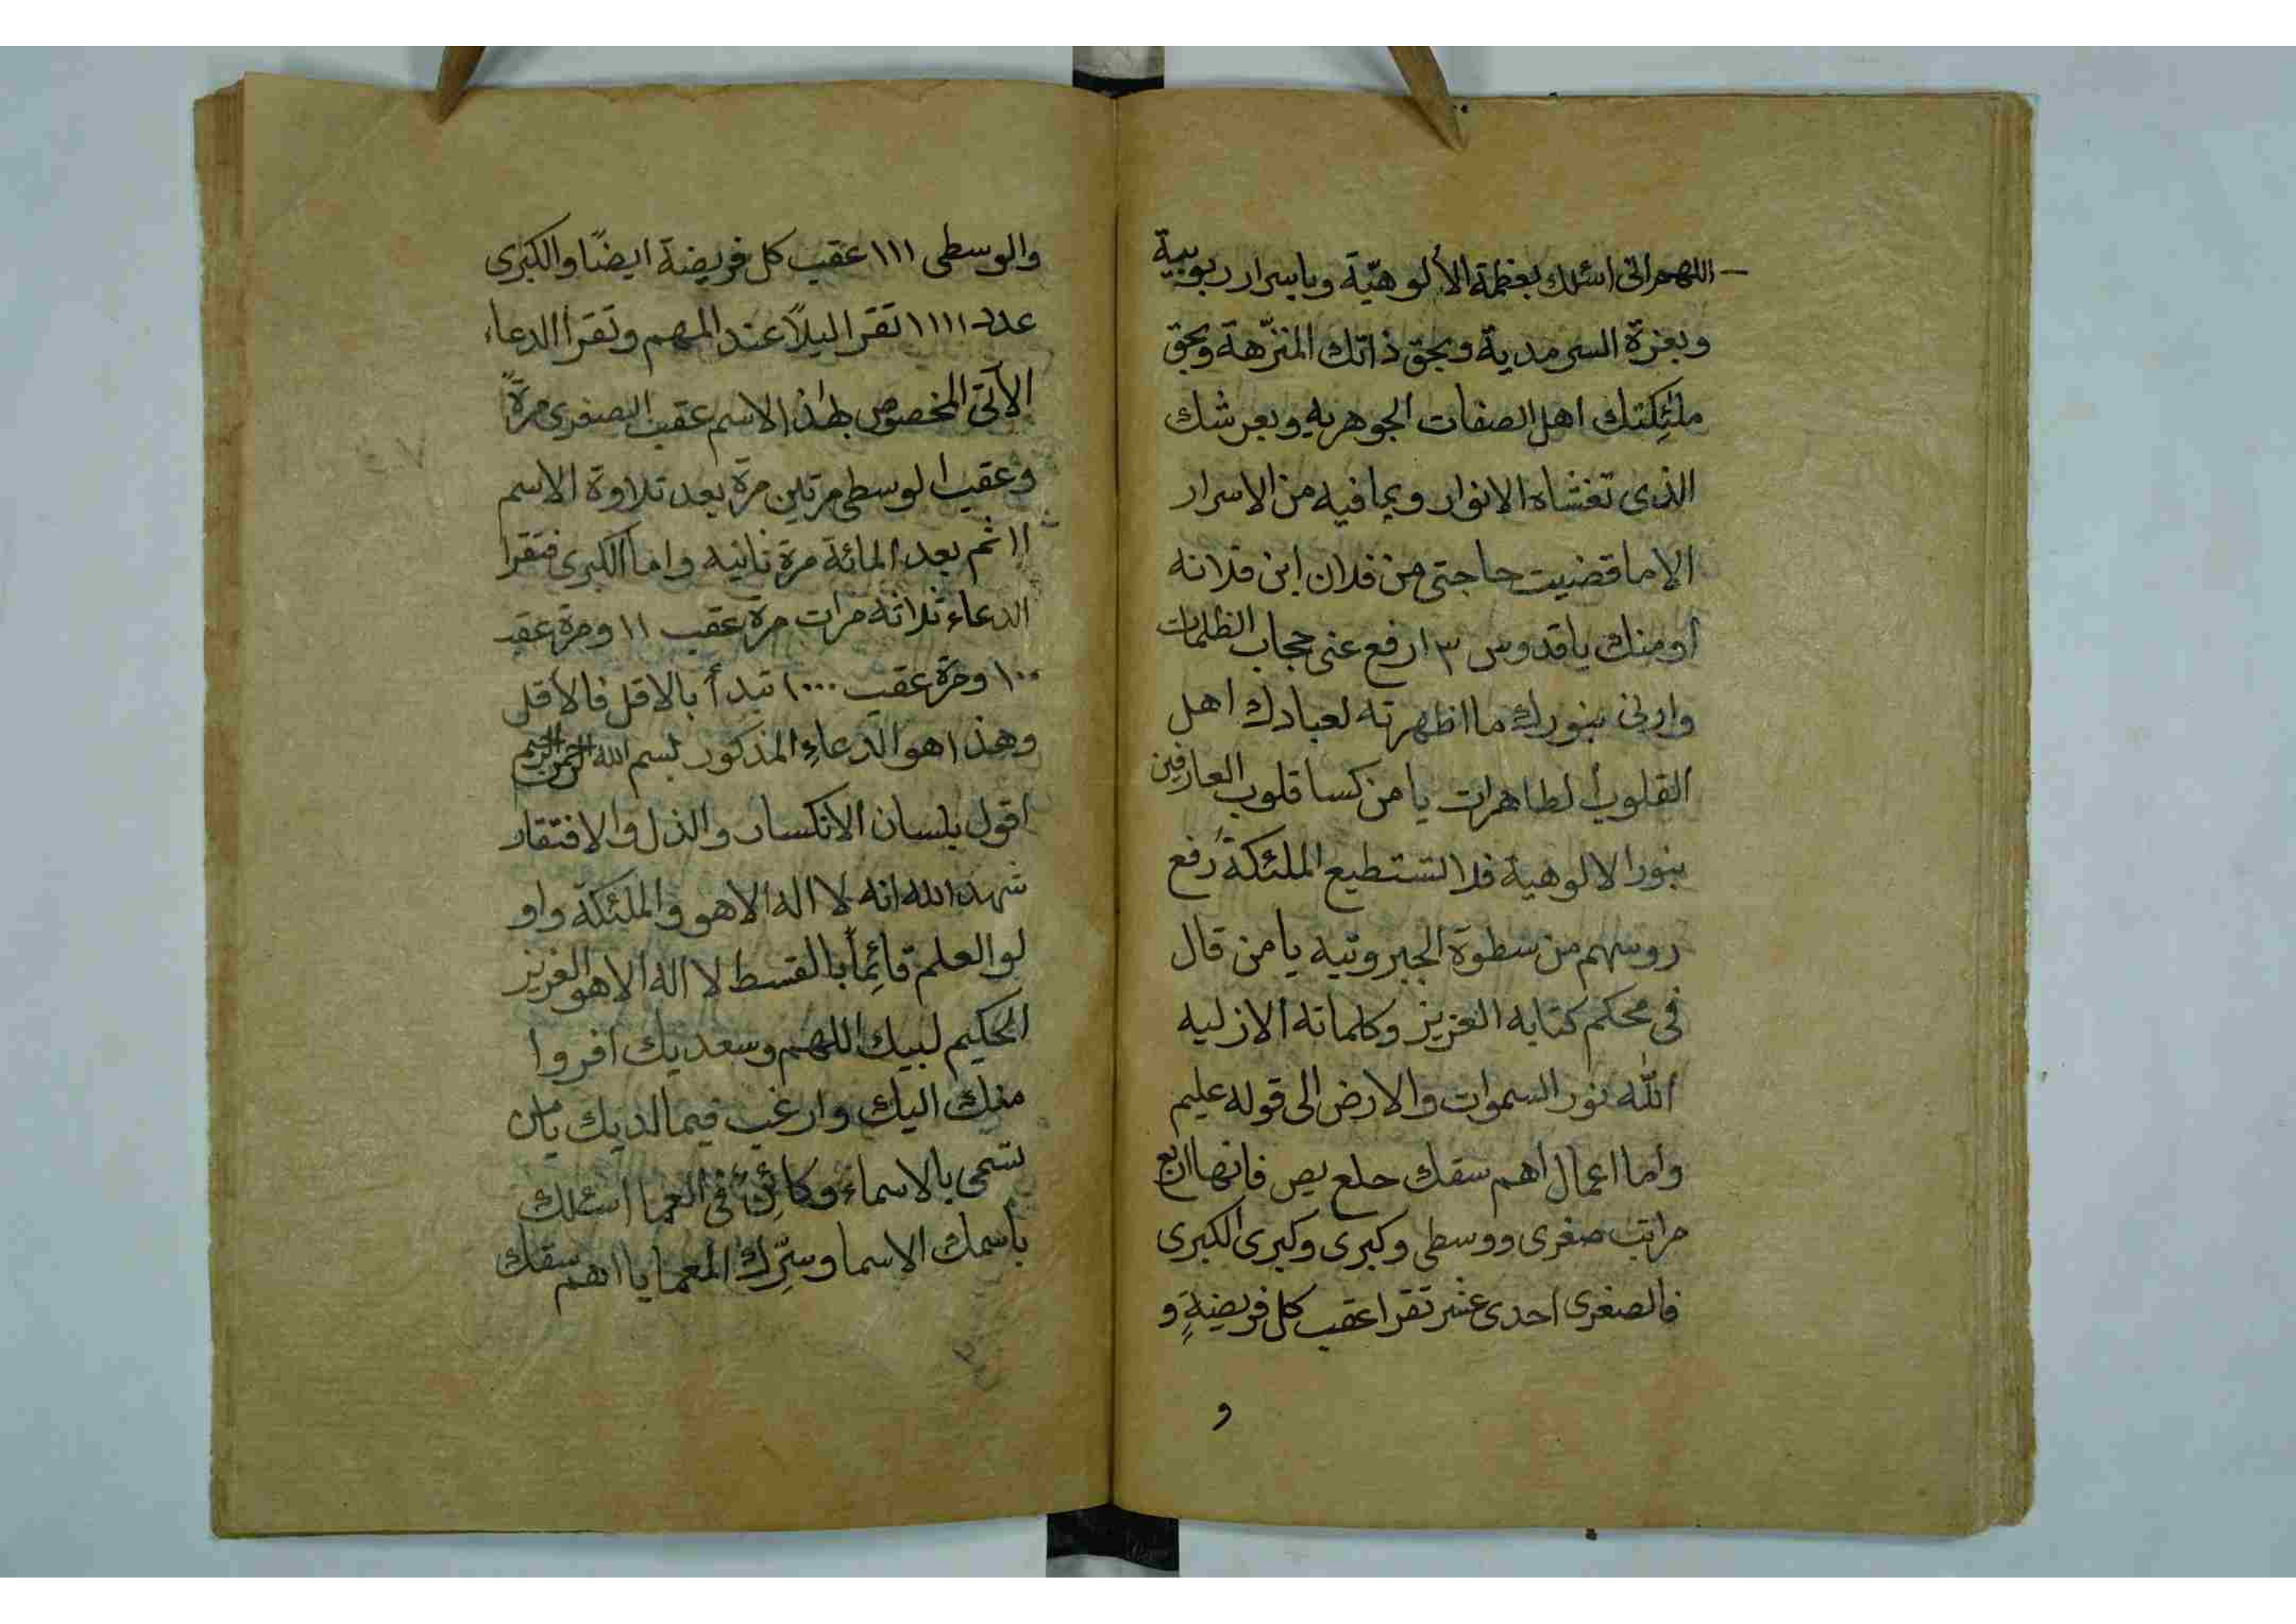 اللهم انى اسئلك بعظمة الألوهيّة وباسرار ربوبية
وبعزة السرمدية وبحق ذاتك المنزّهة وبحق
ملئِكتك اهل الصفات الجوهريه وبعرشك
الذى تغشاه الانوار وبما فيه من الاسرار
الا ما قضيت حاجتى من فلان ابن فلانه
او منك يا قدوس ٣ ارفع عنى حجاب الظلمات
وارنى بنورك ما اظهرته لعبادك اهل
القلوب الطاهرات يا من كسا قلوب العارفين
بنور الالوهية فلا تستطيع الملئكة رفع
روسهم من سطوة الجبروتيه يا من قال
فى محكم كتابه العزيز وكلماته الازليه
اللّٰه نور السموات والارض الى قوله عليم
واما اعمال اهم سقك حلع يص فانها اربع
مراتب صغرى ووسطى وكبرى وكبرى الكبرى
فالصغرى احدى عشر تقرا عقب كل فريضةٍ و
و
والوسطى ١١١ عقيب كل فريضة ايضًا والكبرى
عدد ١١١١ تقرا ليلاً عند المهم وتقرا الدعاء
الآتى المخصوص بهٰذا الاسم عقب الصغرى مرةً
وعقيب الوسطى مرتين مرة بعد تلاوة الاسم
١١ ثم بعد المائة مرة ثانيه واما الكبرى فتقرا
الدعاء ثلاثه مرات مرة عقيب ١١ ومرة عقيب
١٠٠ ومرة عقيب ١٠٠٠ تبدأ بالاقل فالاقل
وهذا هو الدعاءِ المذكور بسم الله الرحمن الرحيم
اقول بلسان الانكسار والذل والافتقار
شهد الله انه لا اله الا هو والملئكة واو
لو العلم قائِماً بالقسط لا اله الا هو العزيز
الحكيم لبيك اللهم وسعديك افروا
منك اليك وارغب فيما لديك يا من
تسمى بالاسماء وكائِنٌ فى العما اسئلك
باسمك الاسما وسِّرك المعما يا اهم سقك